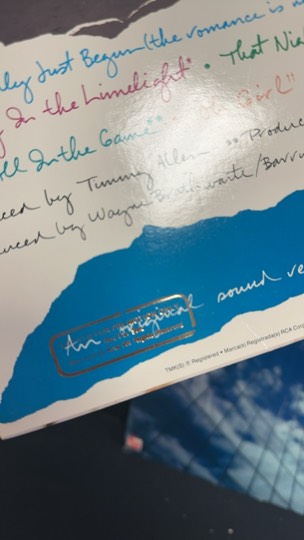 ly Just Begun (the romance is n
In the Limelight* • That Ni
All In the Game** • Oh Girl"
ced by Timmy Allen ** Produc
uced by Wayne Brathwaite/Barry
An original sound re
TMK(S) ® Registered • Marca(s) Registrada(s) RCA Cor